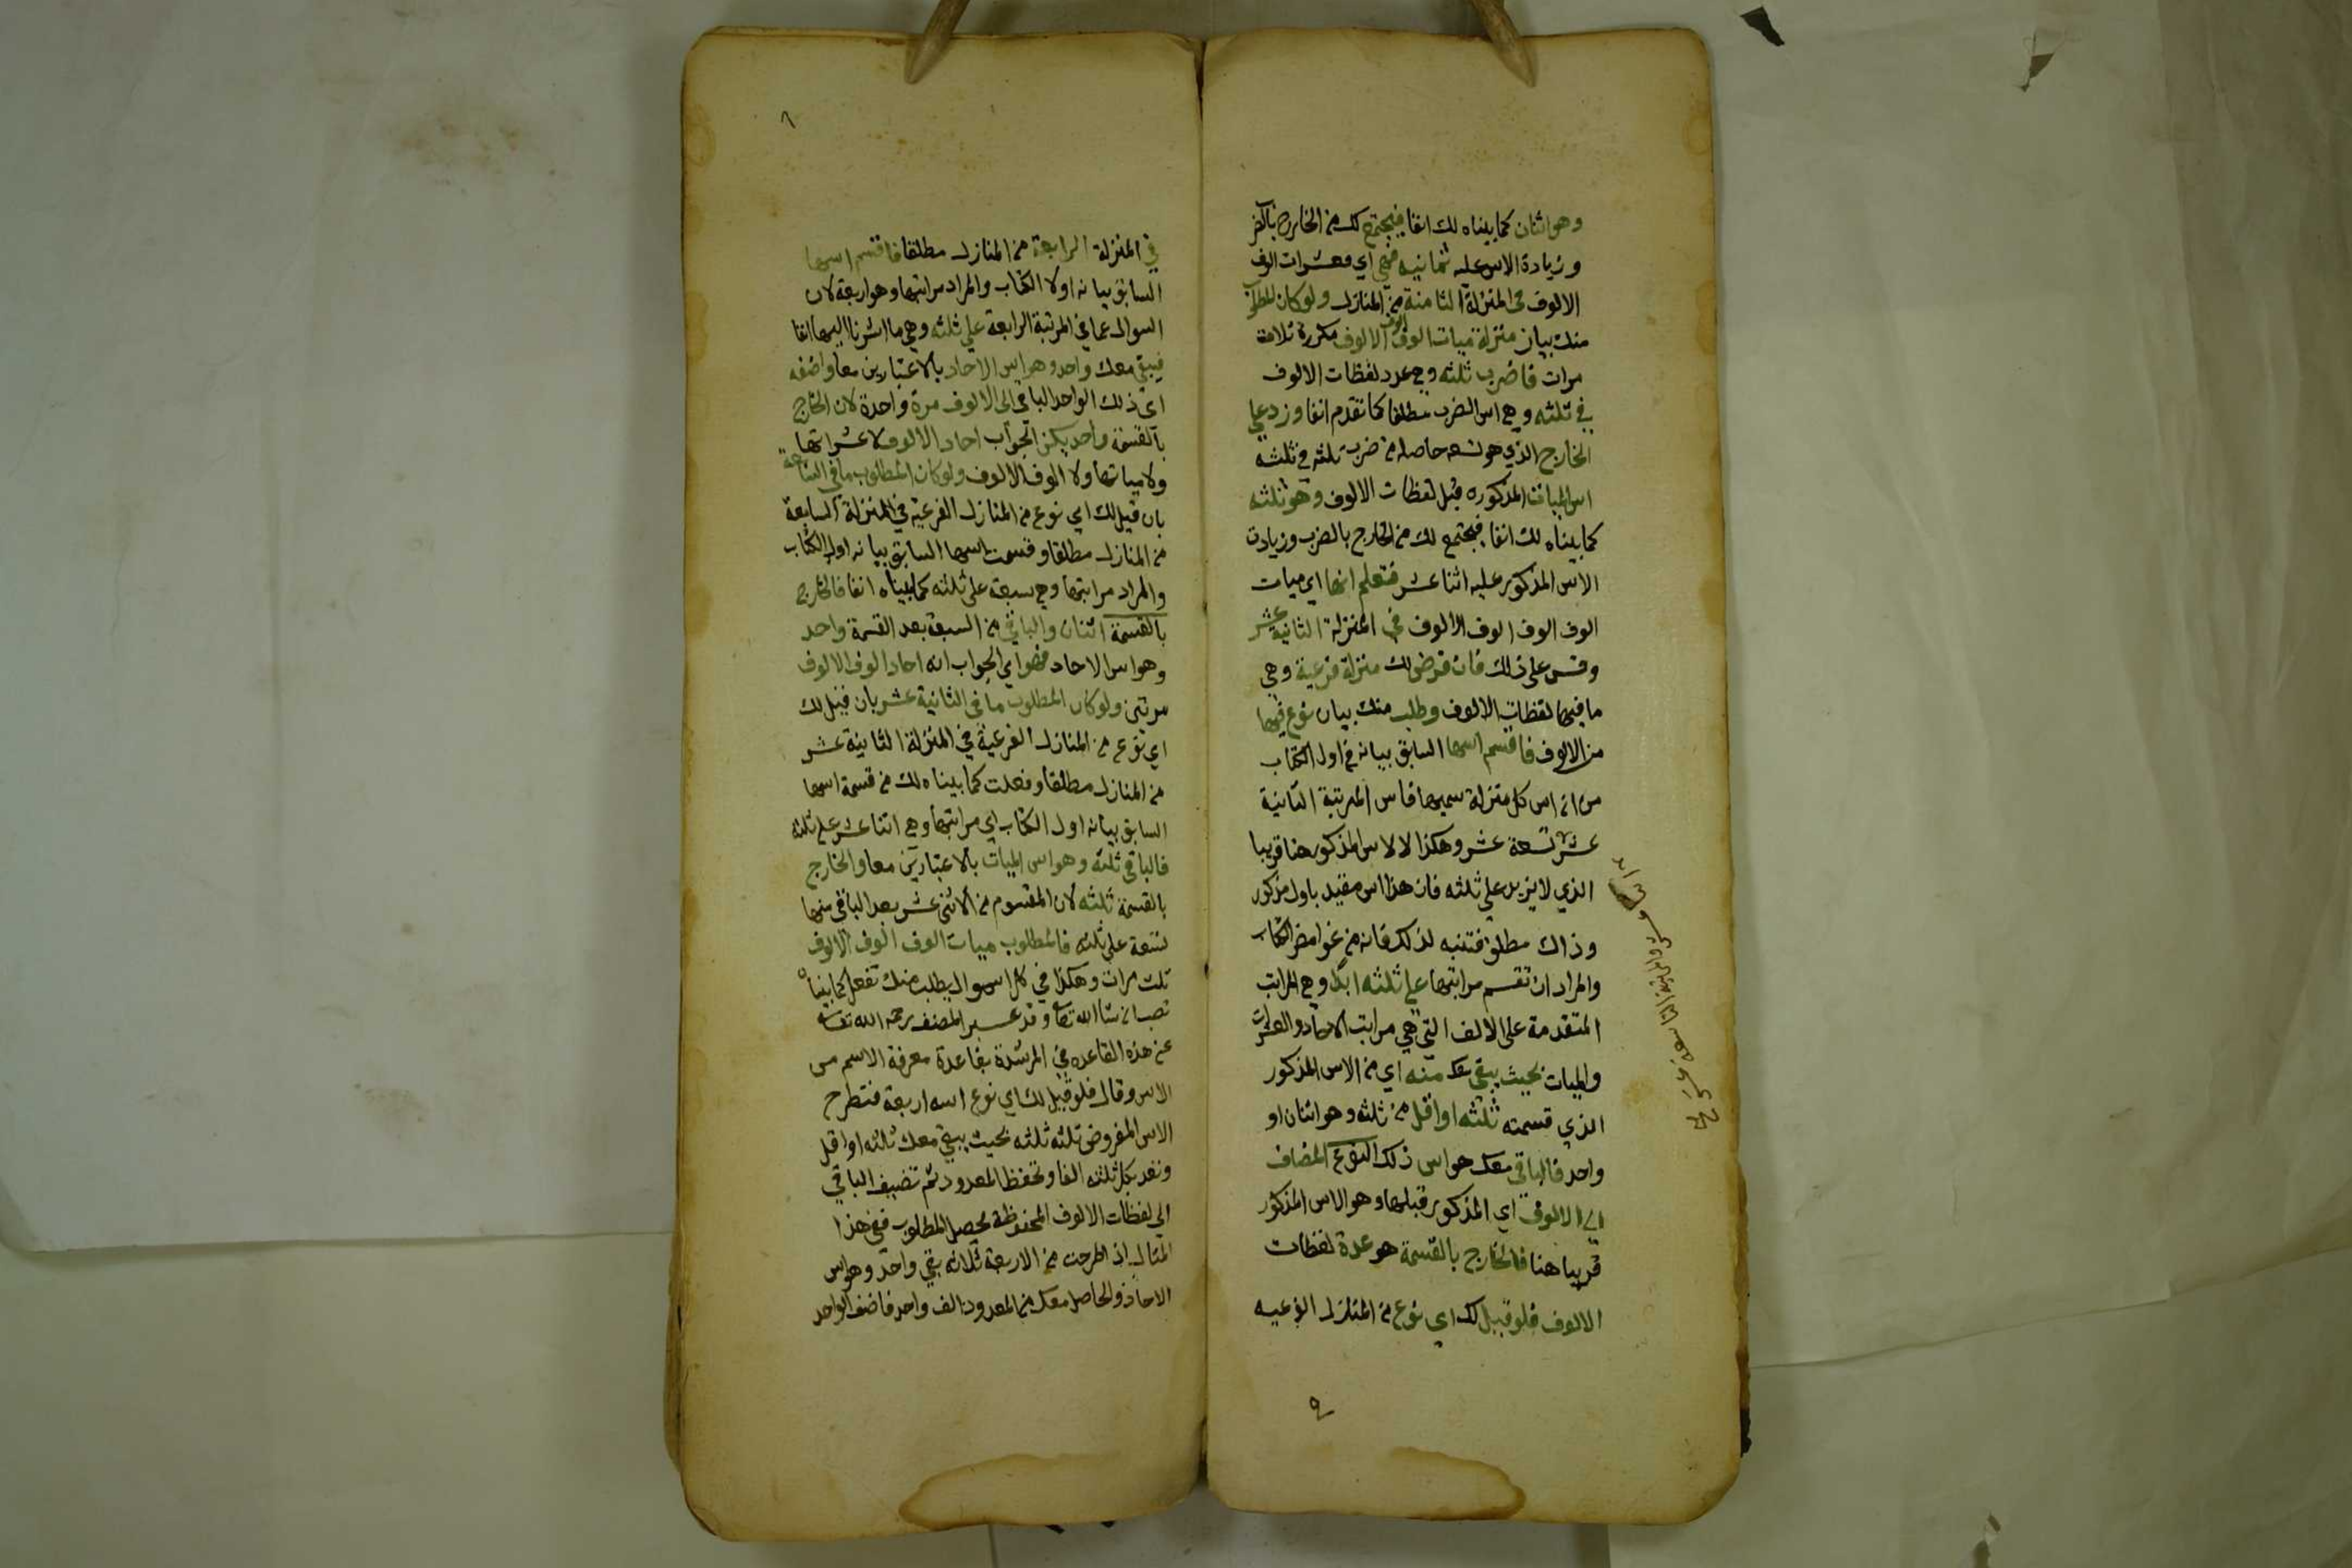 وهو اثنان كما بيناه لك انفا فيجتمع لك من الخارج بالضرب
وزيادة الاس عليه ثمانيه فهي اي عشرات الوف
الالوف في المنزلة الثامنة من المنازل ولو كان المطلوب
منك بيان منزلة ميات الوف الوف الالوف مكررة ثلاثة
مرات فاضرب ثلثه وهي عدد لفظات الالوف
في ثلثه وهي اس الضرب مطلقا كما تقدم انفا وزد على
الخارج الذي هو تسعه حاصله من ضرب ثلثه في ثلثه
اس الميات المذكوره قبل لفظات الالوف وهو ثلثه
كما بيناه لك انفا فيجتمع لك من الخارج بالضرب وزيادت
الاس المذكور عليه اثنا عشر فتعلم انها اي ميات
الوف الوف الوف الالوف في المنزلة الثانية عشر
وقس على ذلك فان فرض لك منزلة فرعية وهي
ما فيها لفظات الالوف وطلب منك بيان نوع فيها
من الالوف فاقسم اسها السابق بيانه في اول الكتاب
من ان اس كل منزلة سميها فاس المرتبة الثانية
عشر تسعة عشر وهكذا لا لاس المذكور هنا قريبا
الذي لا يزيد على ثلثه فان هذا اس مقيد باول مذكور
وذاك مطلق فتنبه لذلك فانه من غوامض الكتاب
والمراد ان تقسم مراتبها على ثلثه ابدا وهي المراتب
المتقدمة على الالف التي هي مراتب الاحاد والعشرات
والميات بحيث يبقى معك منه اي من الاس المذكور
الذي قسمته ثلثه او اقل من ثلثه وهو اثنان او
واحد فالباقي معك هو اس ذلك النوع المضاف
الى الالوف اي المذكور قبلها وهو الاس المذكور
قريبا هنا فالخارج بالقسمة هو عدة لفظات
الالوف فلو قيل لك اي نوع من المنازل الفرعيه
٩
٨
في المنزلة الرابعة من المنازل مطلقا فاقسم اسها
السابق بيانه اولا الكتاب والمراد مراتبها وهو اربعة لان
السوال عما في المرتبة الرابعة على ثلثه وهي ما اشرنا اليها انفا
فيبقى معك واحد وهو اس الاحاد بالاعتبارين معا واضفه
اي ذلك الواحد الباقي الى الالوف مرة واحدة لان الخارج
بالقسمة واحد يكن الجواب احاد الالوف لا عشراتها
ولا مياتها ولا الوف الالوف ولو كان المطلوب ما في السابعة
بان قيل لك اي نوع من المنازل الفرعية في المنزلة السابعة
من المنازل مطلقا وقسمت اسها السابق بيانه اول الكتاب
والمراد مراتبها وهي سبعة على ثلثه كما بيناه انفا فالخارج
بالقسمة اثنان والباقي من السبعة بعد القسمة واحد
وهو اس الاحاد فهو اي الجواب انه احاد الوف الالوف
مرتين ولو كان المطلوب ما في الثانية عشر بان قيل لك
اي نوع من المنازل الفرعية في المنزلة الثانية عشر
من المنازل مطلقا وفعلت كما بيناه لك من قسمة اسها
السابق بيانه اول الكتاب اي مراتبها وهي اثنا عشر على ثلثه
فالباقي ثلثه وهو اس الميات بالاعتبارين معا والخارج
بالقسمة ثلثه لان المقسوم من الاثني عشر بعد الباقي منها
تسعة على ثلثه فالمطلوب ميات الوف الوف الالوف
ثلث مرات وهكذا في كل سوال يطلب منك تفعل كما بيناه
تصب ان شا الله تعالى وقد عبر المصنف رحمه الله تعالى
عن هذه القاعده في المرشدة بقاعدة معرفة الاسم من
الاس وقال فلو قيل لك اي نوع اسه اربعة فتطرح
الاس المفروض ثلثه ثلثه بحيث يبقى معك ثلثه او اقل
وتعد بكل ثلثه الفا وتحفظ المعدود ثم تضيف الباقي
الى لفظات الالوف المحفوظة يحصل المطلوب ففي هذا
المثال اذا طرحت من الاربعة ثلاثه بقي واحد وهو اس
الاحاد والحاصل معك من المعدود الف واحد فاضف الواحد